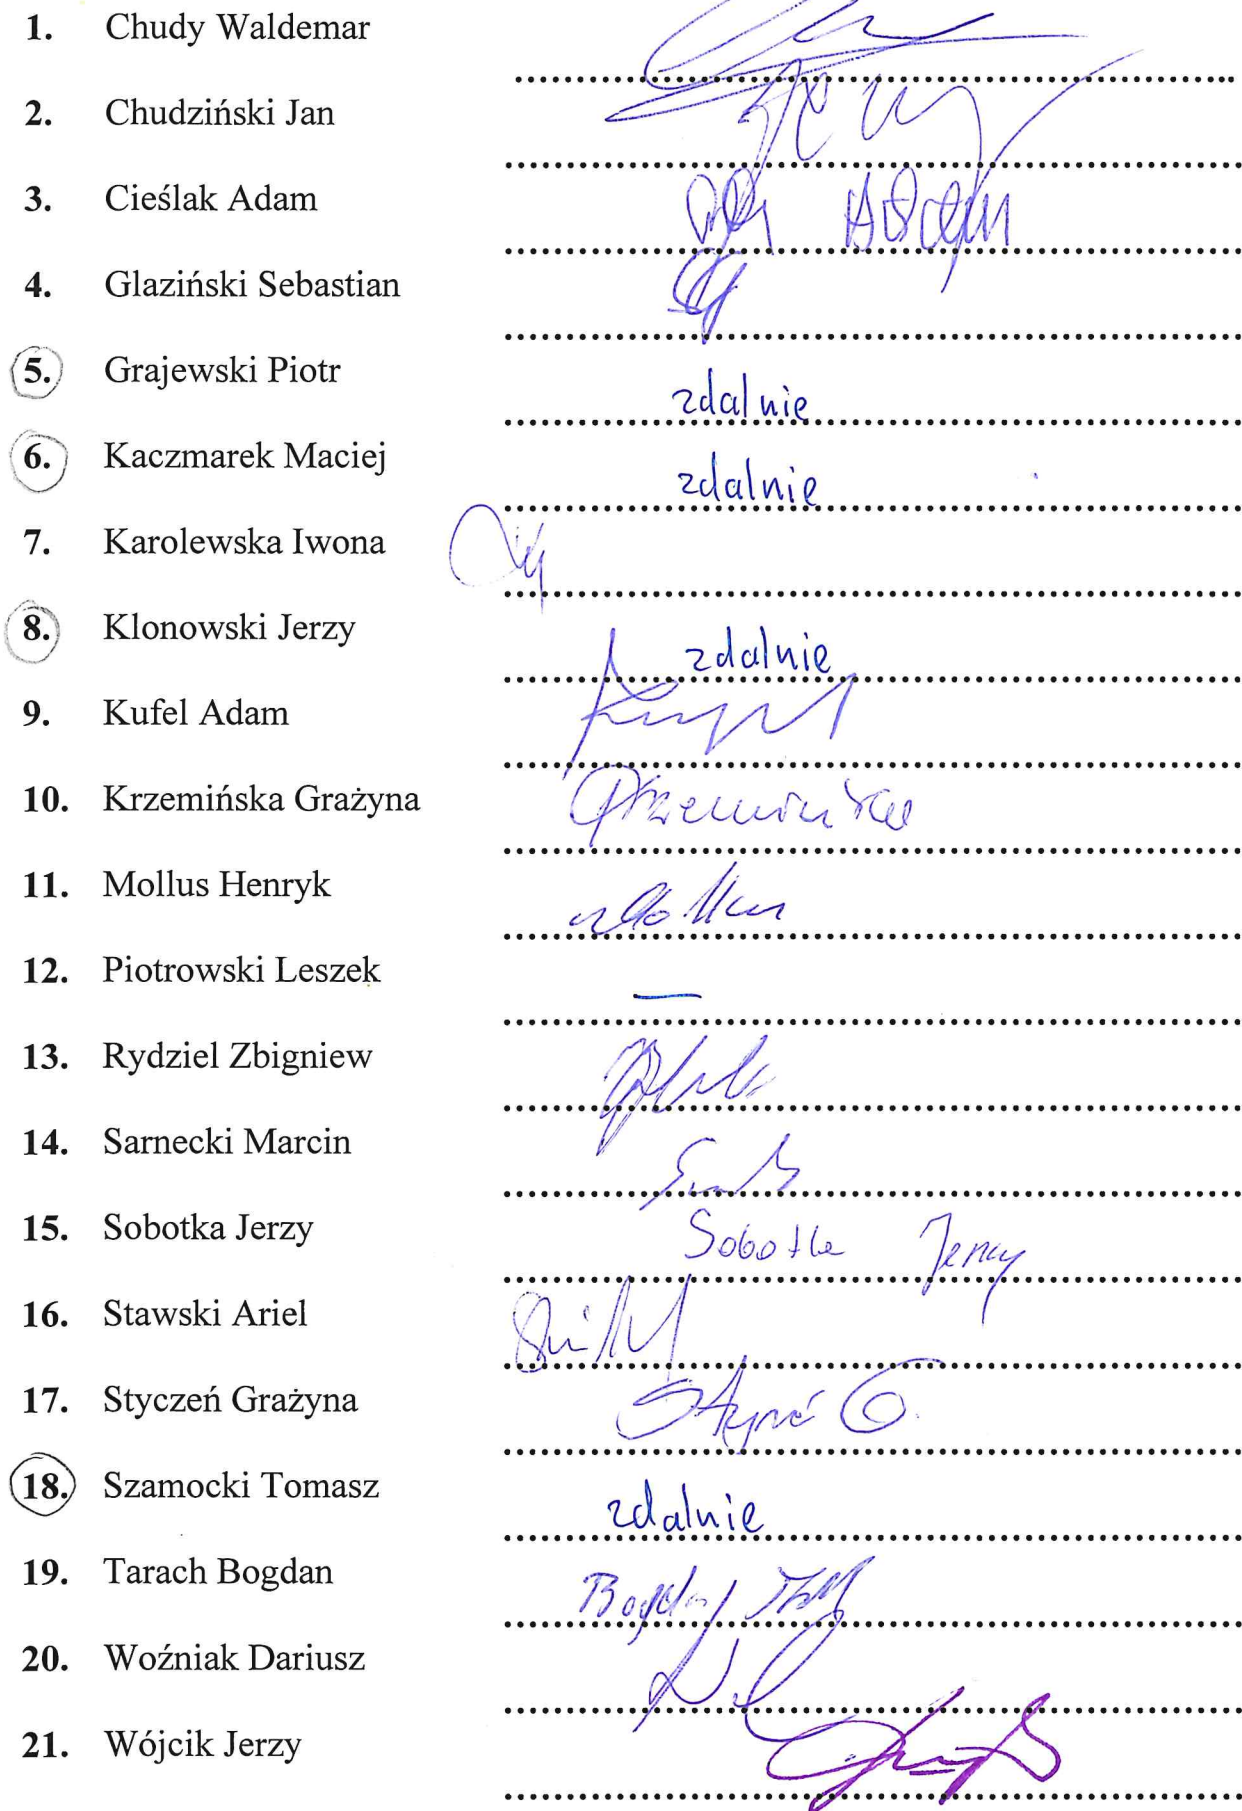 1. Chudy Waldemar
2. Chudziński Jan
3. Cieślak Adam
4. Glaziński Sebastian
5. Grajewski Piotr zdalnie
6. Kaczmarek Maciej zdalnie
7. Karolewska Iwona
8. Klonowski Jerzy zdalnie
9. Kufel Adam
10. Krzemińska Grażyna
11. Mollus Henryk
12. Piotrowski Leszek —
13. Rydziel Zbigniew
14. Sarnecki Marcin
15. Sobotka Jerzy Sobotka Jerzy
16. Stawski Ariel
17. Styczeń Grażyna
18. Szamocki Tomasz zdalnie
19. Tarach Bogdan Bogdan
20. Woźniak Dariusz
21. Wójcik Jerzy